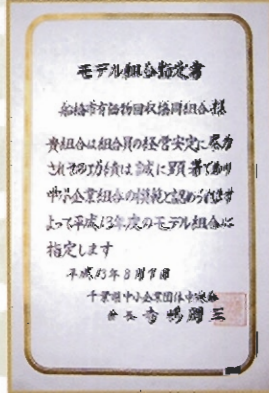 モデル組合指定書
船橋市有価物回収協同組合 様
貴組合は組合員の経営安定に寄与
されその功績は誠に顕著であり
中小企業組合の模範と認められます
よって平成13年度のモデル組合に
指定します
平成13年8月
千葉県中小企業団体中央会
会長